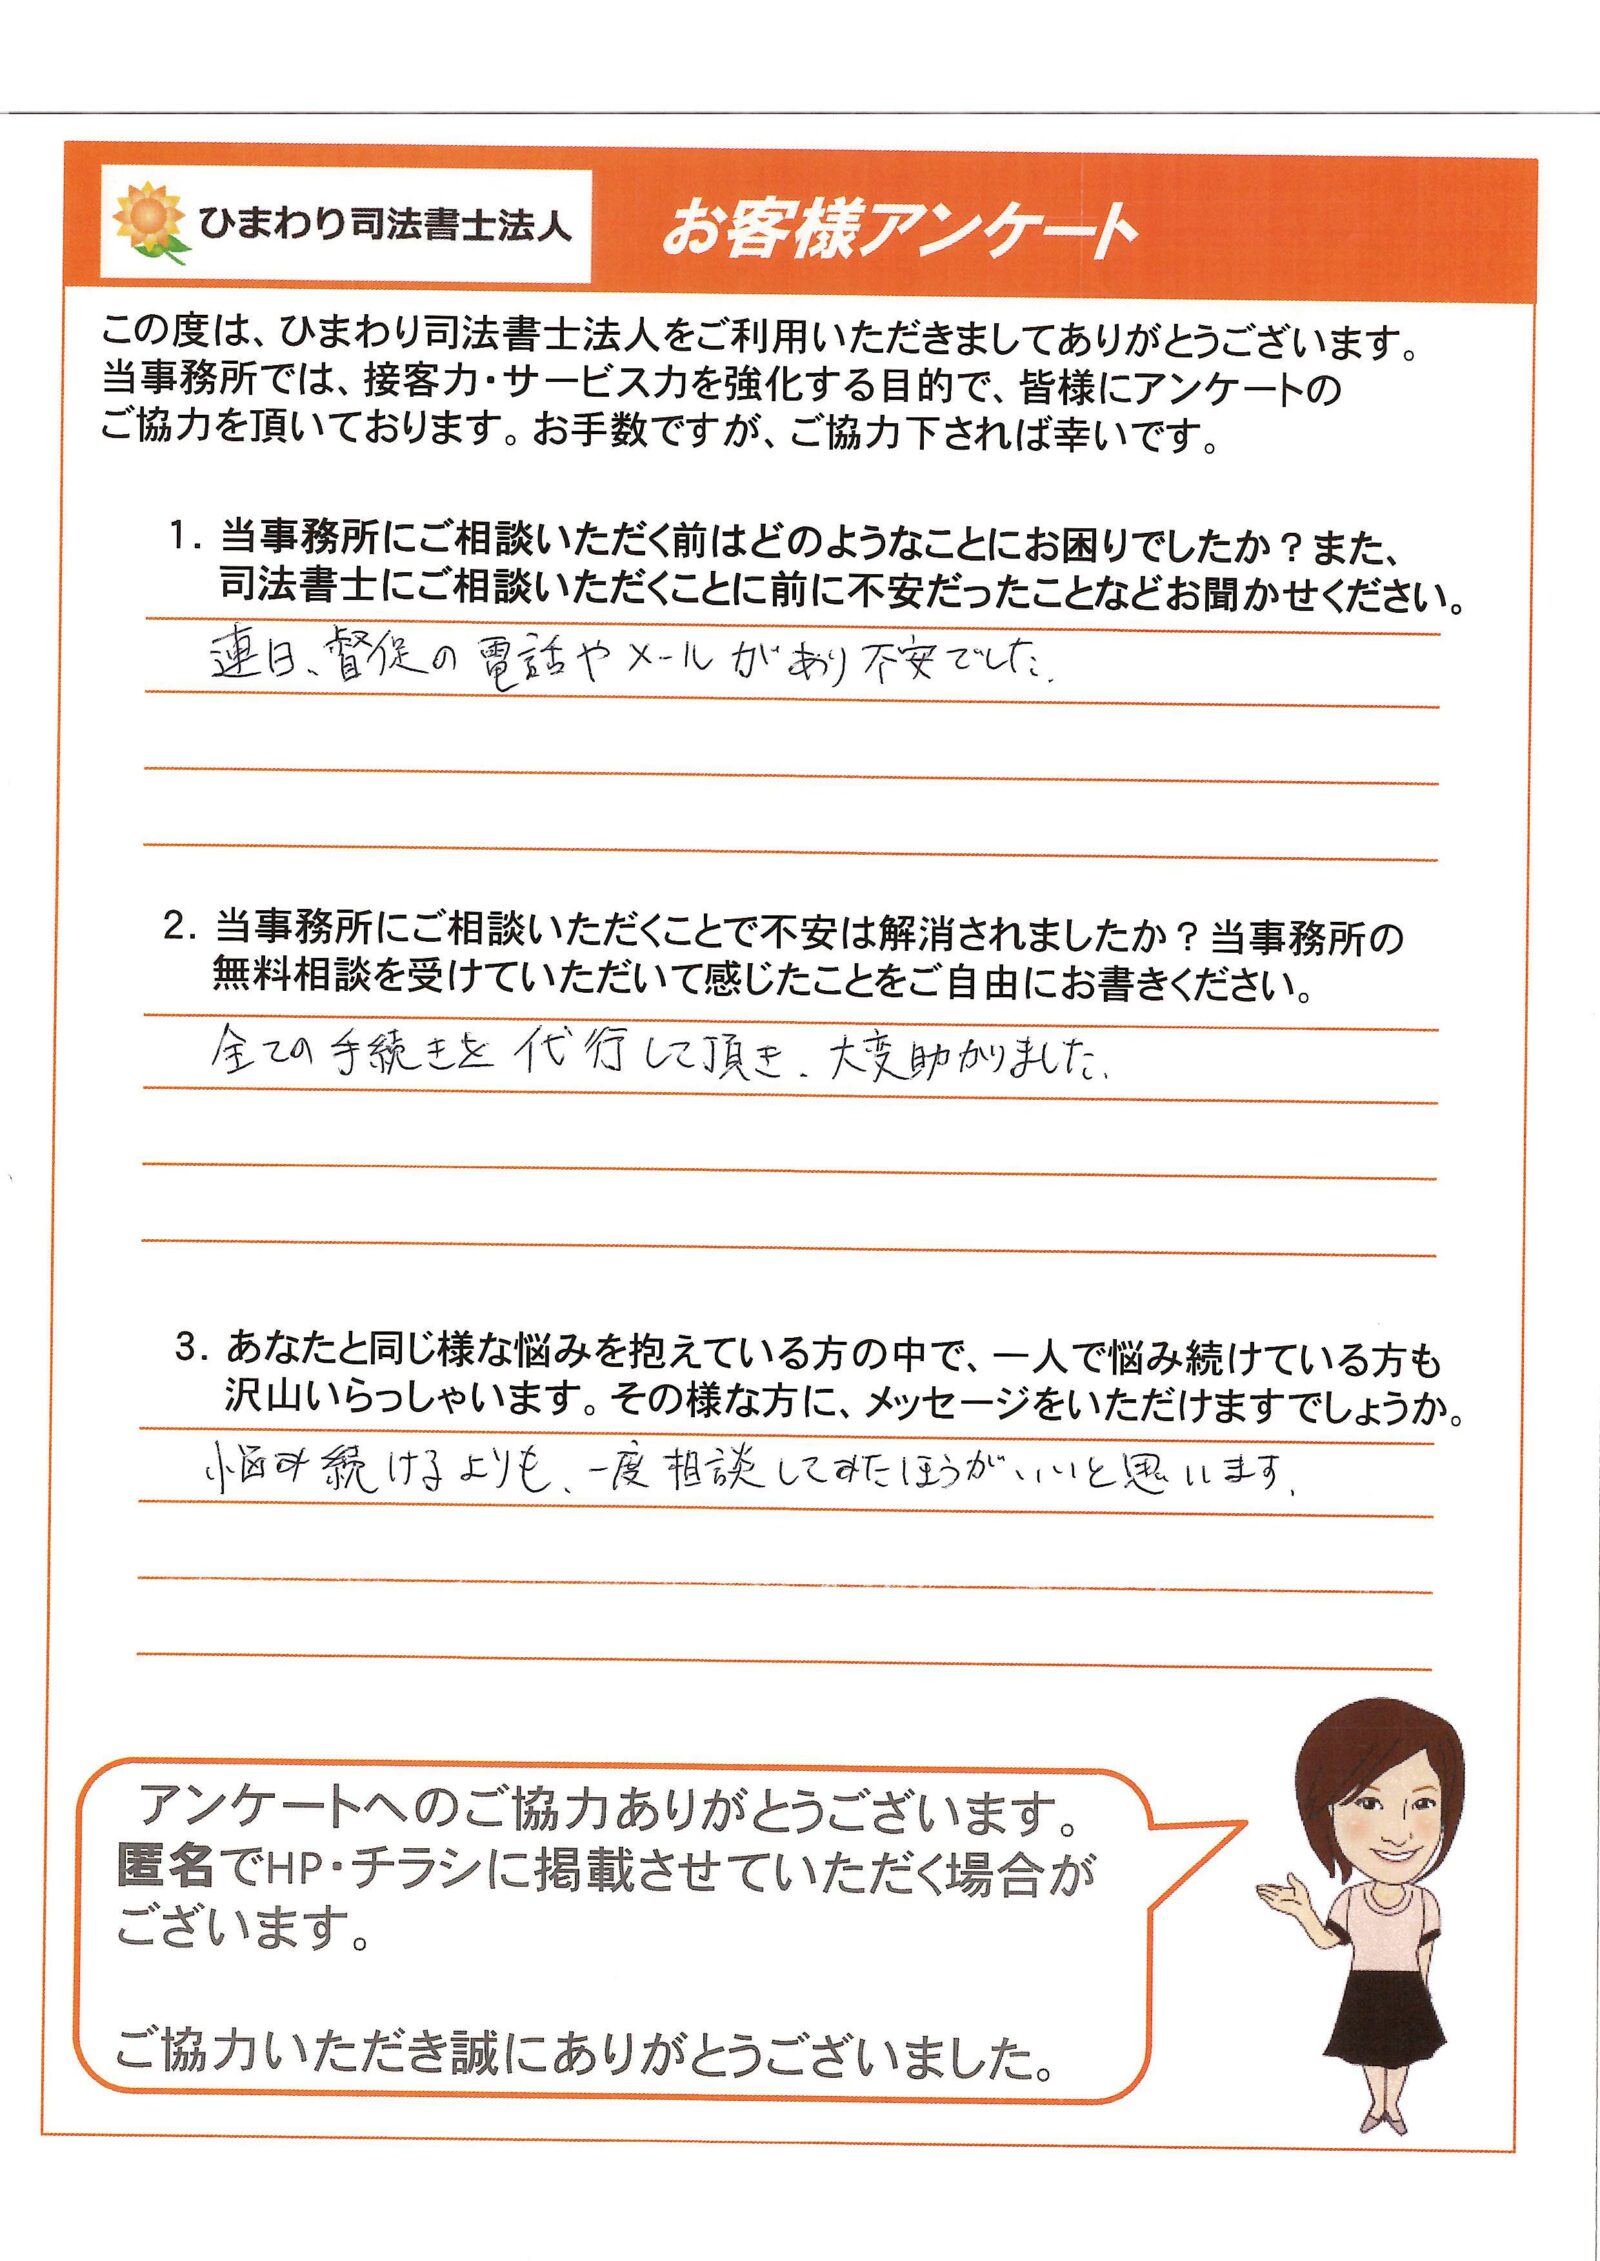 ひまわり司法書士法人
お客様アンケート
この度は、ひまわり司法書士法人をご利用いただきましてありがとうございます。
当事務所では、接客力・サービス力を強化する目的で、皆様にアンケートの
ご協力を頂いております。お手数ですが、ご協力下されば幸いです。
1. 当事務所にご相談いただく前はどのようなことにお困りでしたか？また、
司法書士にご相談いただくことに前に不安だったことなどお聞かせください。
連日、督促の電話やメールがあり不安でした。
2. 当事務所にご相談いただくことで不安は解消されましたか？当事務所の
無料相談を受けていただいて感じたことをご自由にお書きください。
全ての手続きを代行して頂き、大変助かりました。
3. あなたと同じ様な悩みを抱えている方の中で、一人で悩み続けている方も
沢山いらっしゃいます。その様な方に、メッセージをいただけますでしょうか。
悩み続けるよりも、一度相談してみたほうがいいと思います。
アンケートへのご協力ありがとうございます。
匿名でHP・チラシに掲載させていただく場合が
ございます。
ご協力いただき誠にありがとうございました。